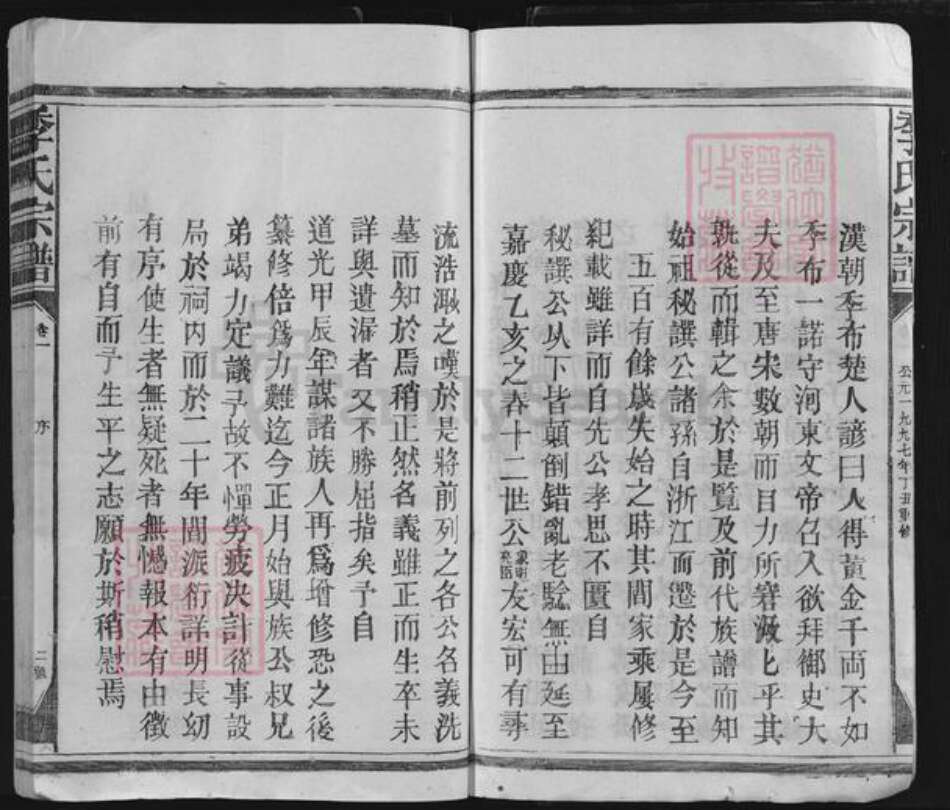 季氏宗譜
公元一九九七年丁丑重修
漢朝季布楚人諺曰人得黃金千両不如
季布一諾守河東文帝召入欲拜御史大
夫及至唐宋數朝而目力所窘渺匕乎其
難從而輯之余於是覧及前代族譜而知
始祖秘譔公諸孫自浙江而遷於是今至
五百有餘歲失始之時其間家乘屢修
紀載雖詳而自先公孝思不匱自
秘譔公从下皆顛倒錯亂老騐無由延至
嘉慶乙亥之春十二世公友宏可有夀
流浩瀚之嘆於是將前列之各公名義洗
墓而知於焉稍正然名義雖正而生卒未
詳與遺漏者又不勝屈指矣予自
道光甲辰年謀諸族人再爲增修恐之後
纂修倍爲力難迄今正月始與族公叔兄
弟竭力定議予故不憚勞疲决計從事設
局於祠內而於二十年間派衍詳明長幼
有序使生者無疑死者無憾報本有由徵
前有自而予生平之志願於斯稍慰焉
季氏宗譜
卷一
序
二號